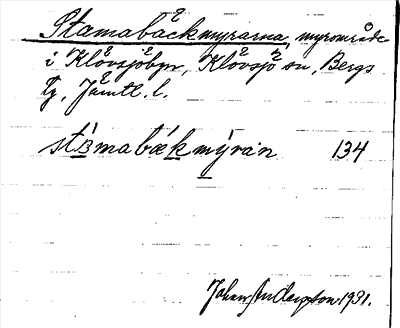 Stamabäckmyrarna, myrområde
i Klövsjöbyn, Klövsjö sn, Bergs
tg, Jämtl. l.
mabækmýran 134
Johan 1931.